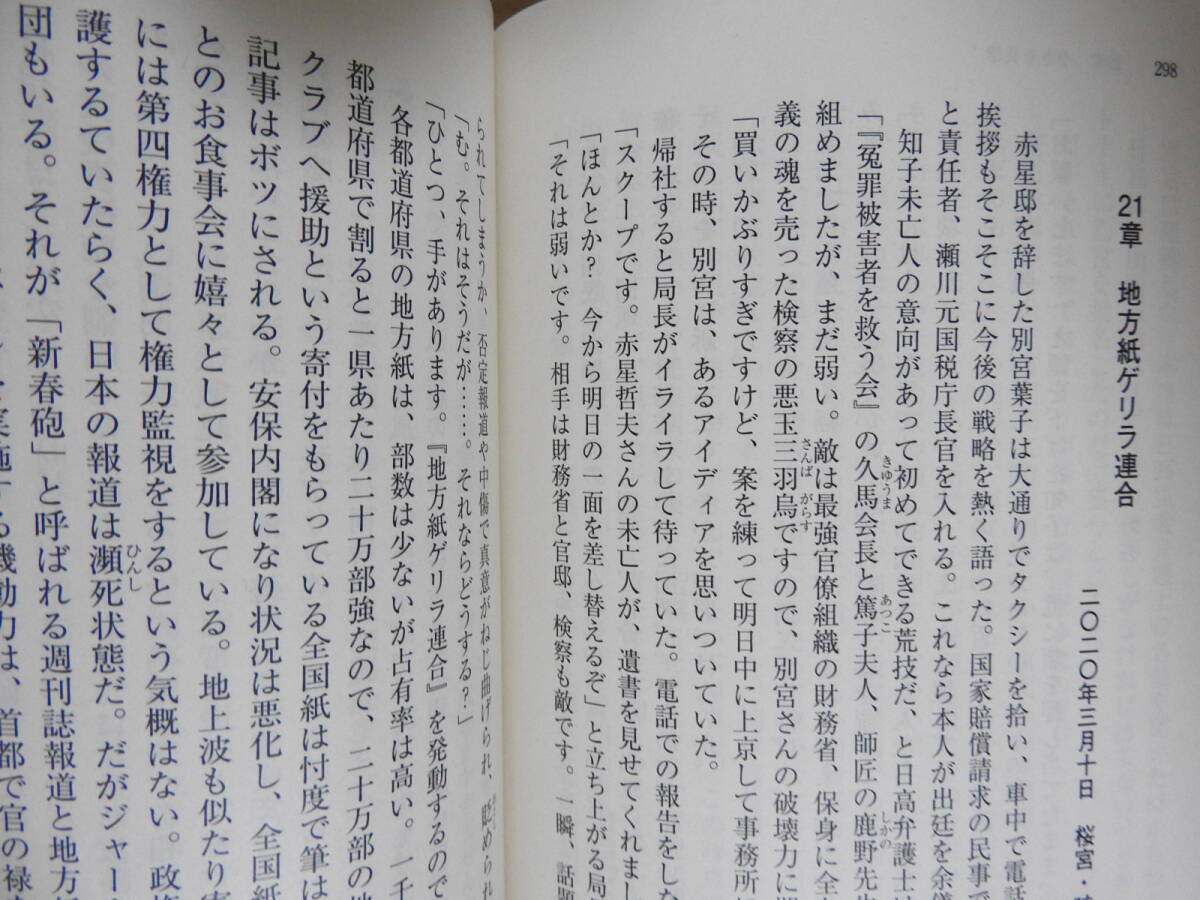 298
21章　地方紙ゲリラ連合
二〇二〇年三月十日　桜宮・
赤星邸を辞した別宮葉子は大通りでタクシーを拾い、車中で電話
挨拶もそこそこに今後の戦略を熱く語った。国家賠償請求の民事で
と責任者、瀬川元国税庁長官を入れる。これなら本人が出廷を余儀
知子未亡人の意向があって初めてできる荒技だ、と日高弁護士は
「『冤罪被害者を救う会』の久馬会長と篤子夫人、師匠の鹿野先生
組めましたが、まだ弱い。敵は最強官僚組織の財務省、保身に全
義の魂を売った検察の悪玉三羽烏ですので、別宮さんの破壊力に期
「買いかぶりすぎですけど、案を練って明日中に上京して事務所に
その時、別宮は、あるアイディアを思いついていた。
帰社すると局長がイライラして待っていた。電話での報告をした
「スクープです。赤星哲夫さんの未亡人が、遺書を見せてくれまし
「ほんとか？　今から明日の一面を差し替えるぞ」と立ち上がる局
「それは弱いです。相手は財務省と官邸、検察も敵です。一瞬、話題
られてしまうか、否定報道や中傷で真意がねじ曲げられ、貶められ
「む。それはそうだが……。それならどうする？」
「ひとつ、手があります。『地方紙ゲリラ連合』を発動するので
各都道府県の地方紙は、部数は少ないが占有率は高い。一千
都道府県で割ると一県あたり二十万部強なので、二十万部の地
クラブへ援助という寄付をもらっている全国紙は忖度で筆は
記事はボツにされる。安保内閣になり状況は悪化し、全国紙
とのお食事会に嬉々として参加している。地上波も似たり寄
には第四権力として権力監視をするという気概はない。政権
護するていたらく、日本の報道は瀕死状態だ。だがジャー
団もいる。それが「新春砲」と呼ばれる週刊誌報道と地方
実施する機動力は、首都で官の禄